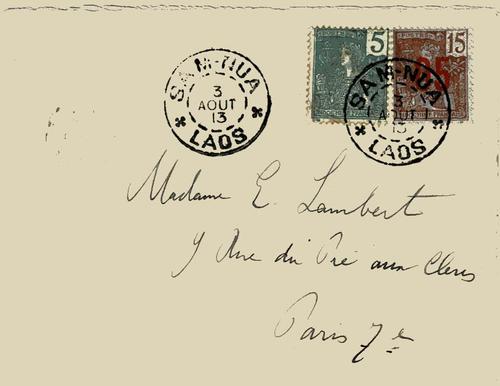 5 15
SAM-NUA
3
AOUT
13
LAOS
SAM-NUA
3
AOUT
13
LAOS
Madame E. Lambert
9 Rue du Pré aux Clercs
Paris 7e